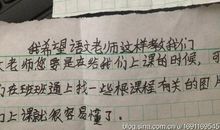 我希望语文老师这样教我们
老师您要是在给我们上课的时候,可
在班班通上找一些跟课程有关的图片
上课就很容易懂了.
blog.sina.com.cn/u/1691169545